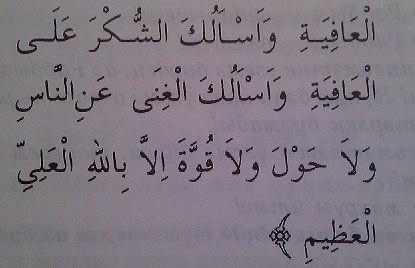 الْعَافِيَةِ وَاَسْاَلُكَ الشُّكْرَ عَلَى
الْعَافِيَةِ وَاَسْاَلُكَ الْغِنٰى عَنِ النَّاسِ
وَلاَ حَوْلَ وَلاَ قُوَّةَ اِلاَّ بِاللهِ الْعَلِيِّ
الْعَظِيمِ